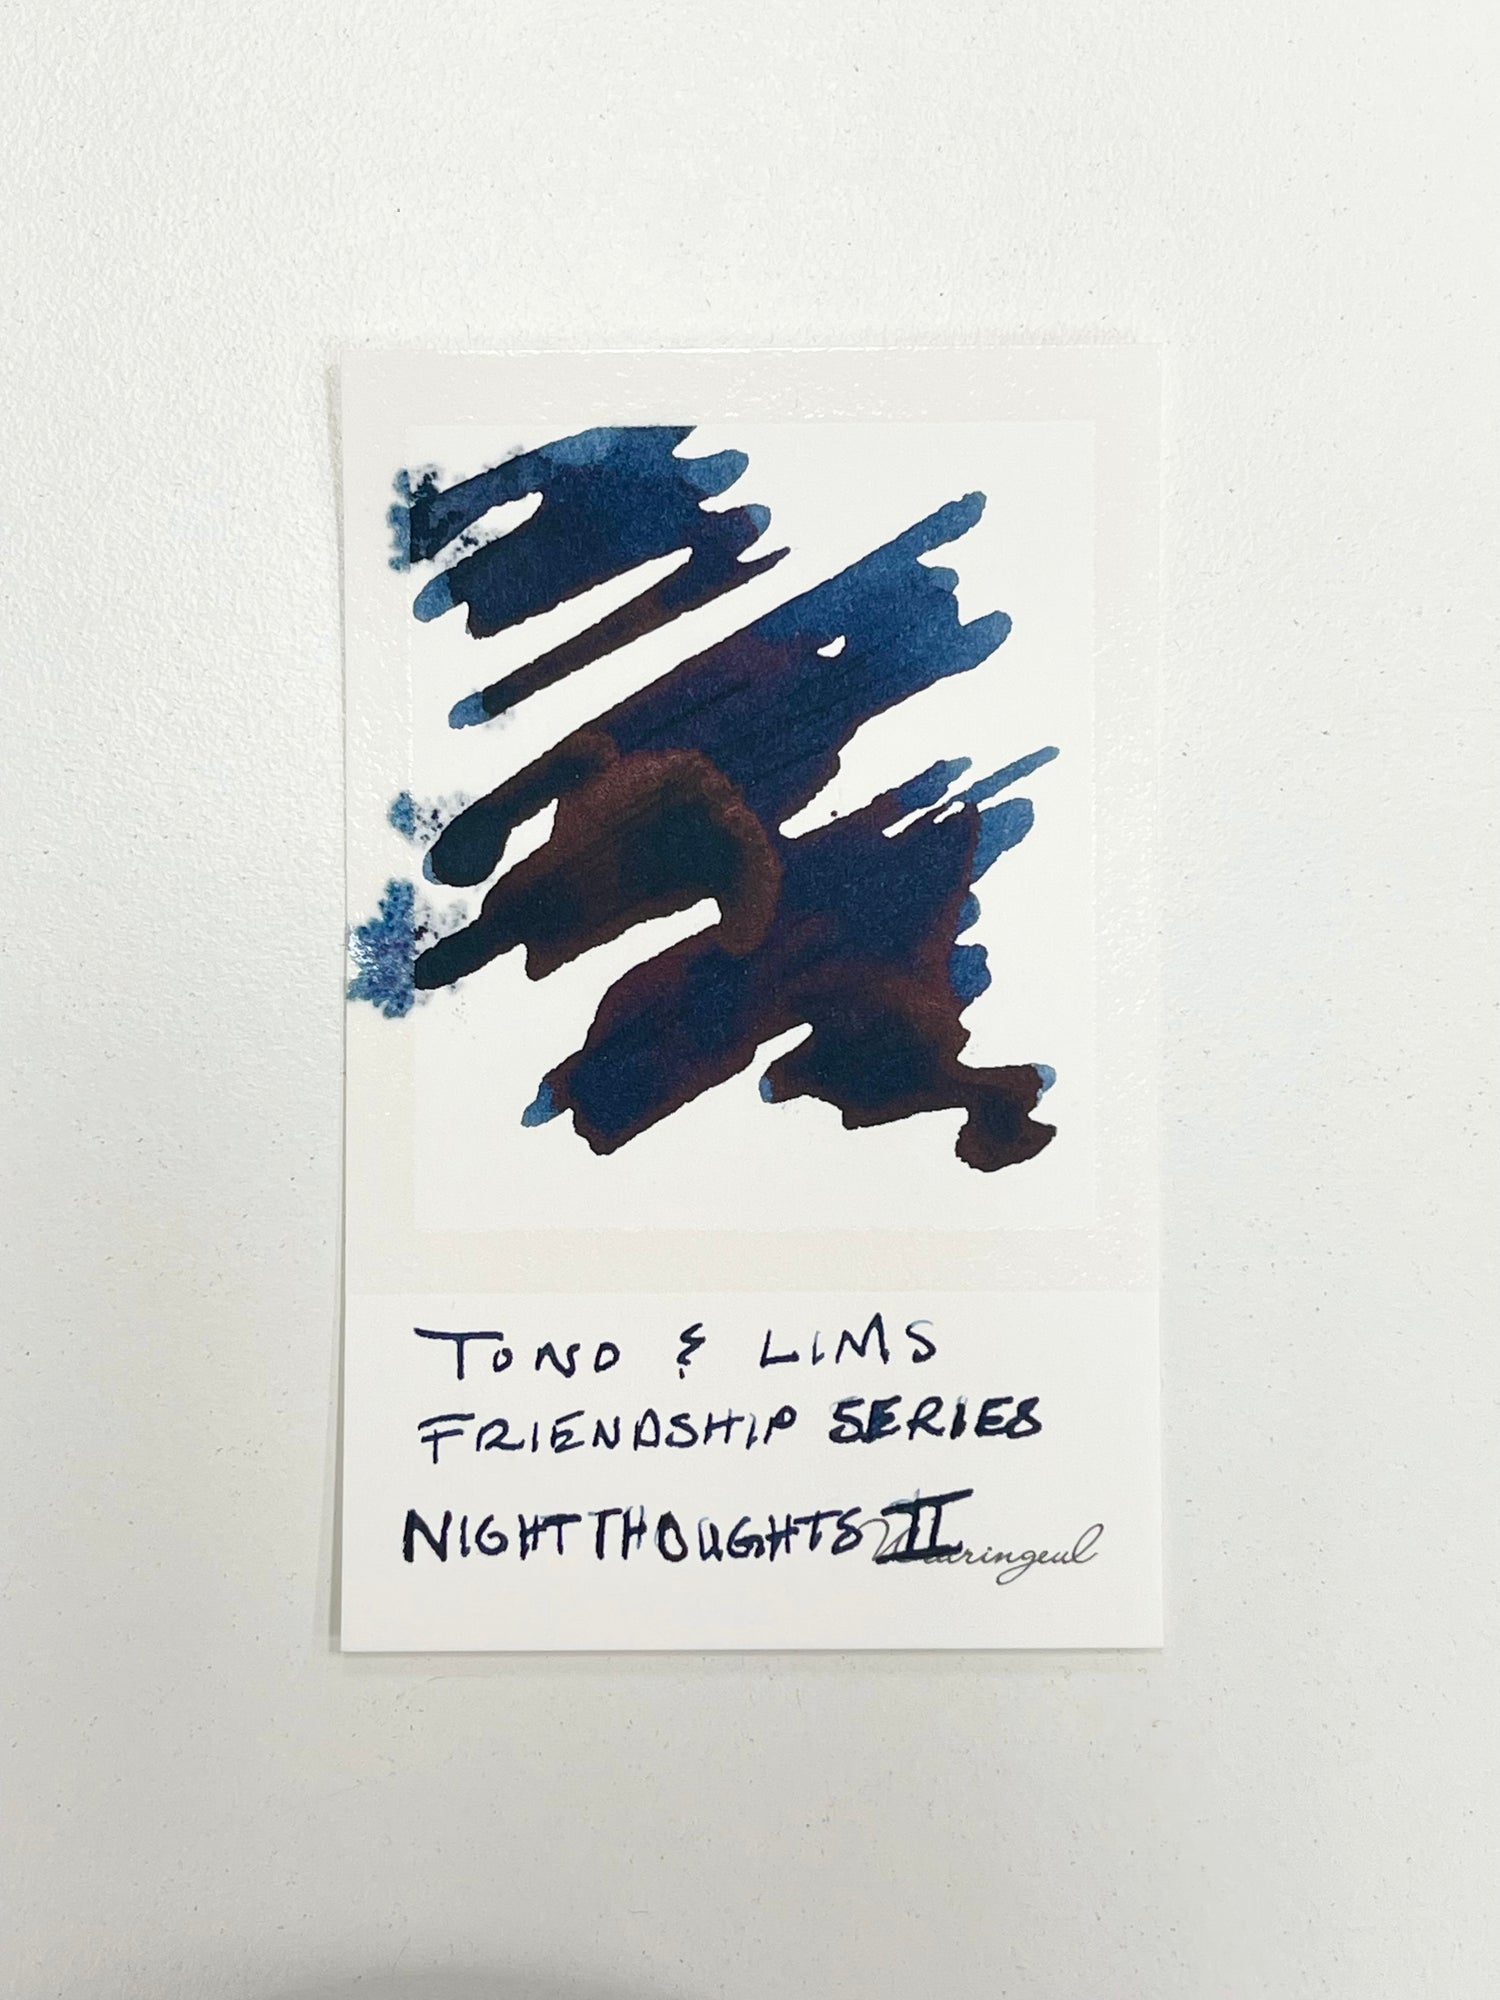 TONO & LIMS
FRIENDSHIP SERIES
NIGHTTHOUGHTS II